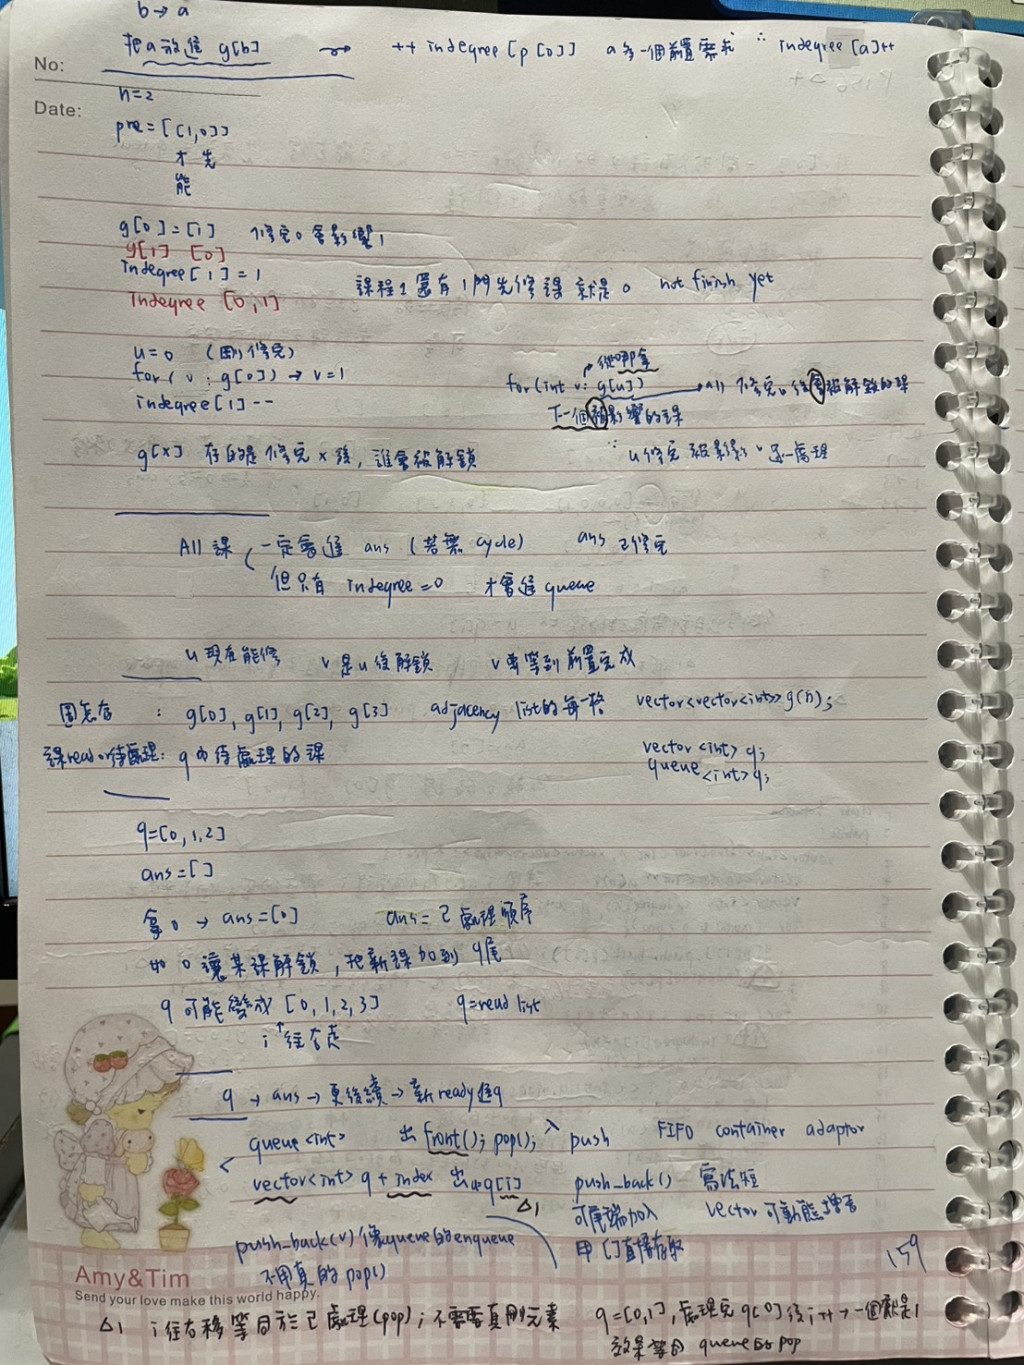 b → a
No:
把a放進 g[b] → ++ indegree[p[0]] a多一個前置需求 ∵ indegree[a]++
Date:
n=2
pre=[[1,0]]
才 先
能
g[0]=[1] 修完0會影響1
g[1] [0]
indegree[1]=1
課程1還有1門先修課 就是0 not finish yet
indegree [0,1]
u=0 (剛修完)
for( v : g[0]) → v=1
indegree[1]--
從哪拿
for(int v: g[u]) → All 修完u後會被解鎖的課
下一個被影響的課
g[x] 存的是修完x後, 誰會被解鎖
∵ u修完 被影響 逐一處理
All 課 一定會進 ans (若無 cycle) ans 已修完
但只有 indegree=0 才會進queue
u 現在能修 v 是 u 後解鎖 v 要等到前置完成
圖怎存 : g[0], g[1], g[2], g[3] adjacency list的每一格 vector<vector<int>> g(n);
課ready待處理: q 中待處理的課
vector<int> q;
queue<int> q;
q=[0,1,2]
ans=[]
拿0 → ans=[0] ans=已處理順序
如 0 讓某課解鎖, 把新課加到 q尾
q 可能變成 [0,1,2,3] q=read list
i 往右走
q → ans → 更後續 → 新ready進q
queue<int> 出 front(); pop(); push FIFO container adaptor
vector<int> q + index 出 q[i] push_back() 寫法短
△1
可尾端加入 vector 可動態增長
push_back(v) 像queue的enqueue
用[]直接存取
不用真的pop()
159
Amy&Tim
Send your love make this world happy.
△1 i往右移等同於已處理(pop); 不需要真刪元素 q=[0,1], 處理完 q[0]後, i++ → 下一個就是1
效果等同 queue的pop